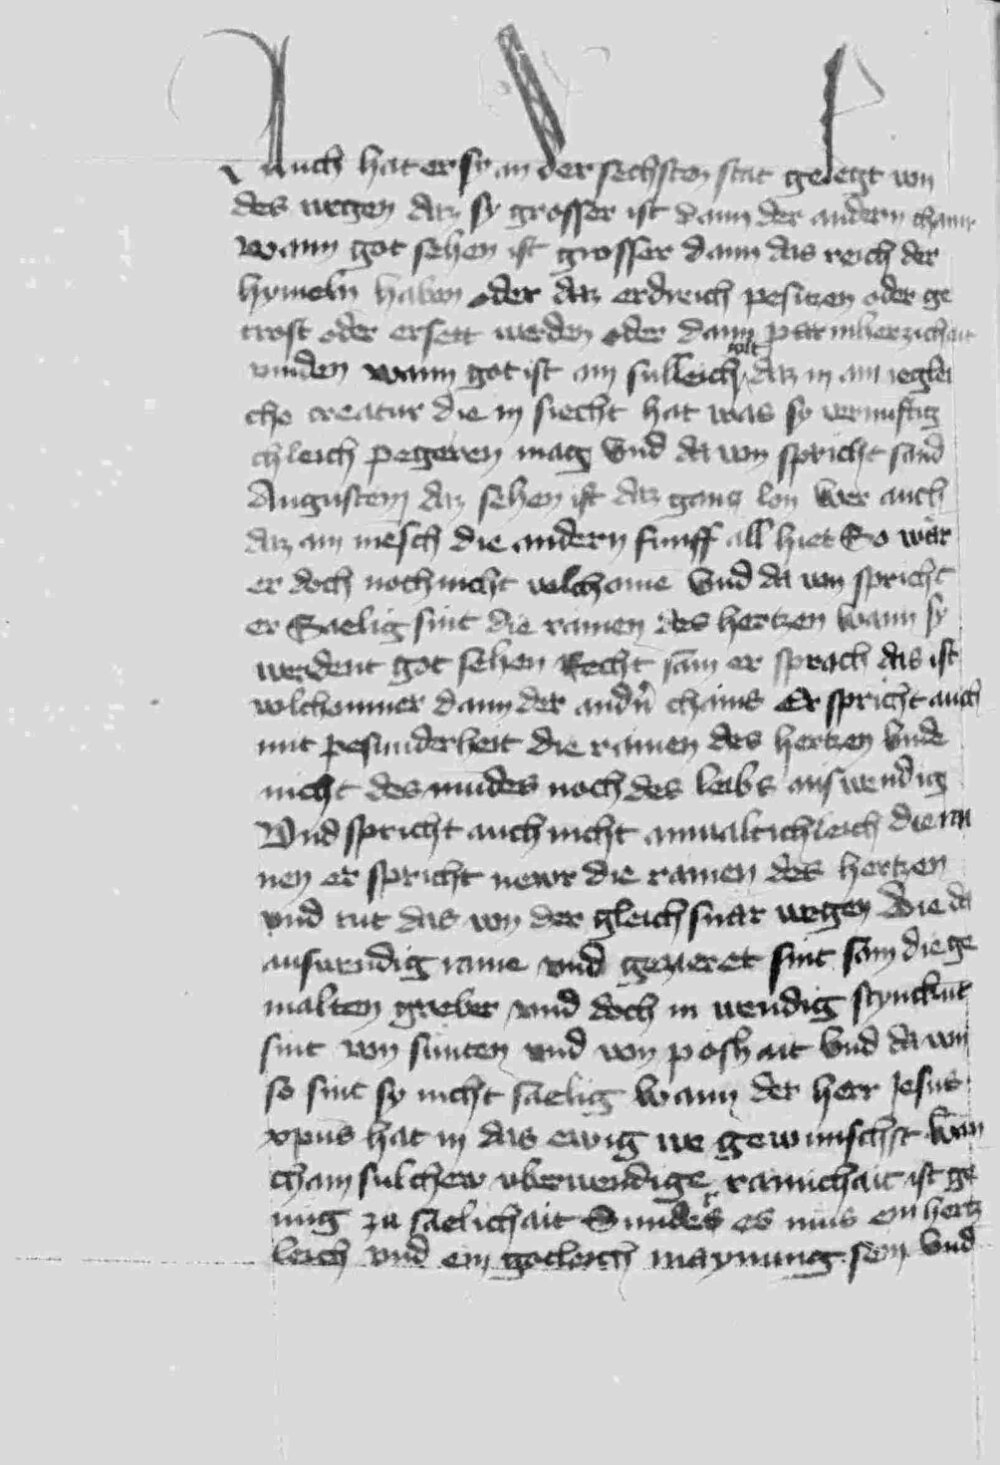 Auch hat er sy an der sechsten stat gelegt von
des wegen daz sy grosser ist dann der andern chains
Wann got sehen ist grosser dann das reich der
hymeln haben oder daz erdreich pesitzen oder ge
trost oder ersett werden oder dann parmherzichait
vinden wann got ist ain sulleich gut daz in ain ieglei
che creatur die in siecht hat was sy vernuftig
chleich pegeren mag Vnd da von spricht sand
Augustein daz sehen ist daz gancz lon Wer auch
daz ain mesch die andern funff all hiet So wår
er doch noch nicht volchome Vnd da von spricht
er Saelig sint die rainen des hertzen wann sy
werdent got sehen Recht sam er sprach das ist
volchomner dann der andn̄ chains Er spricht auch
mit pesunderheit die rainen des hertzen Vnde
nicht des mundes noch des leibs auswendig
Vnd spricht auch nicht ainvaltichleich die rai
nen er spricht newr die rainen des hertzen
vnd tut das von der gleichsnar wegen Die da
auswendig raine vnd gezieret sint sam die ge
malten greber vnd doch in wendig stynckunt
sint von sunten vnd von poshait Vnd da von
so sint sy nicht saelig Wann der herr Jesus
xpūs hat in das ewig we gewunschst Wan
chain sulchew vberwendige rainichait ist ge
nug zu saelichait Sunder es mus ein hertz
leich vnd ein gotleich maynung sein Vnd